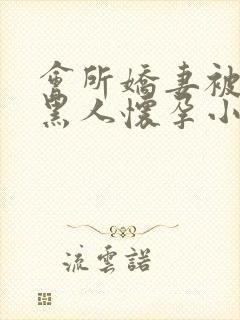 會所嬌妻被
黑人懷孕小
流雲諾